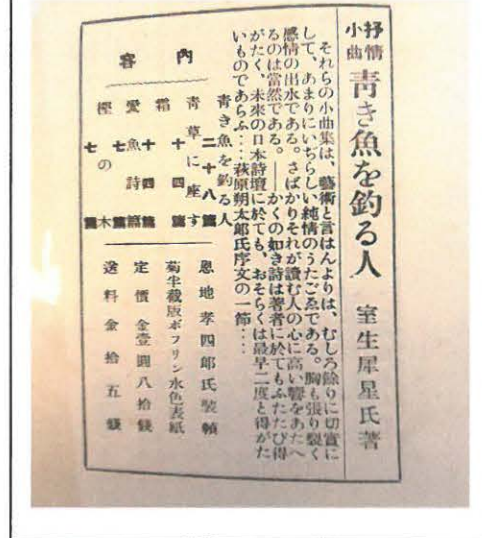 抒情小曲 青き魚を釣る人 室生犀星氏著
それらの小曲集は、藝術と言はんよりは、むしろ餘りに切實に
して、あまりにいぢらしい純情のうたごゑである。胸も張り裂く
感情の出水である。さばかりそれが讀む人の心に高い響をあたへ
るのは當然である。――かくの如き詩は著者に於てもふたたび得
がたく、未來の日本詩壇に於ても、おそらくは最早二度と得がた
いものであらふ‥‥萩原朔太郎氏序文の一節‥‥
內容
青き魚を釣る人 二十八篇
青草に座す 十四篇
霜 十四篇
愛魚詩篇 七篇
樫の木 七篇
恩地孝四郎氏裝幀
菊半截版ポフリン水色表紙
定價金壹圓八拾錢
送料金拾五錢